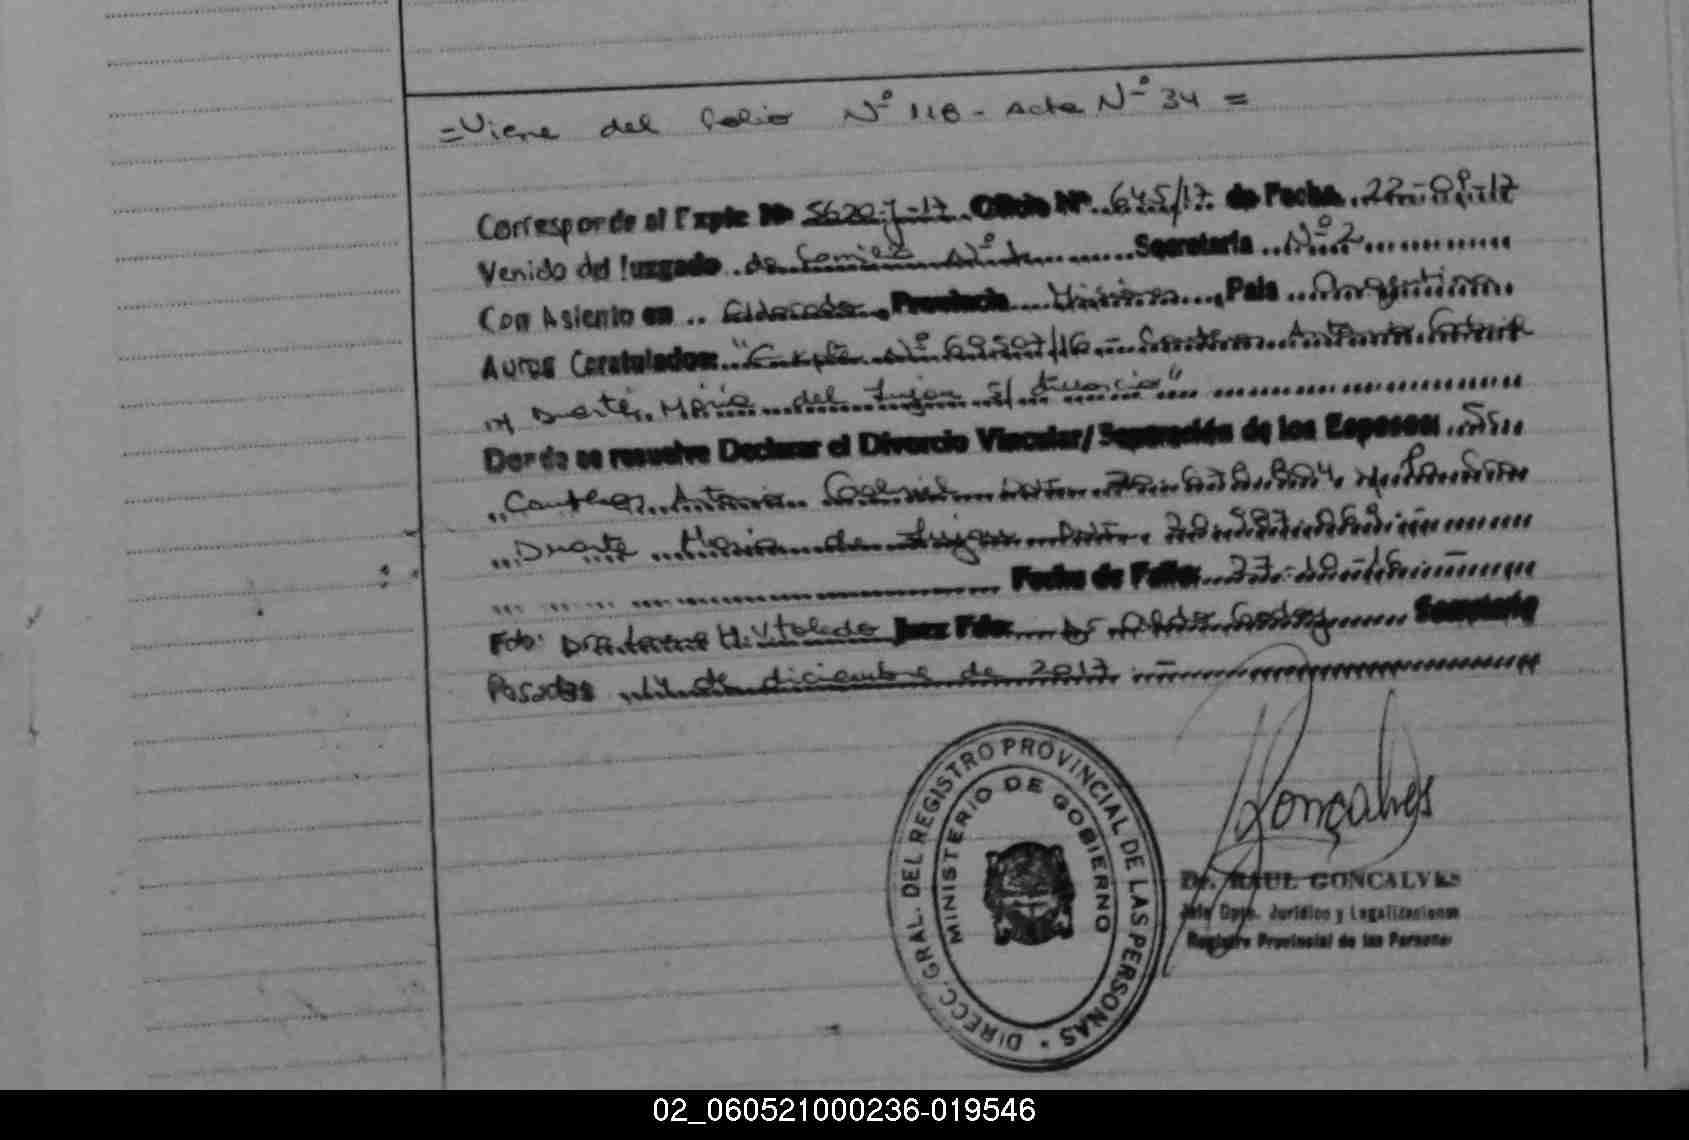 =Viene del folio Nº 118 - Acta Nº 34 =
Corresponde al Expte Nº 5620-J-17 Oficio Nº 645/17 de Fecha 22-09-17
Venido del Juzgado de Familia Nº 1 Secretaría Nº 2
Con Asiento en Eldorado, Provincia Misiones, Pais Argentina
Autos Caratulados: "Expte Nº 69507/16 - Antonio Gabriel
y Duarte, María del Lujan s/ divorcio"
Donde se resuelve Declarar el Divorcio Vincular/Separación de los Esposos: Sr.
Antonio Gabriel DNI y la Sra
Duarte María de Lujan DNI
Fecha de Fallo: 27-10-16 -
Fdo: Juez Fdo: Dr Godoy Secretario
Posadas, 14 de diciembre de 2017 -
DIRECC. GRAL. DEL REGISTRO PROVINCIAL DE LAS PERSONAS
MINISTERIO DE GOBIERNO
Gonçalves
Dr. RAUL GONCALVES
Jefe Dpto. Jurídico y Legalizaciones
Registro Provincial de las Personas
02_060521000236-019546